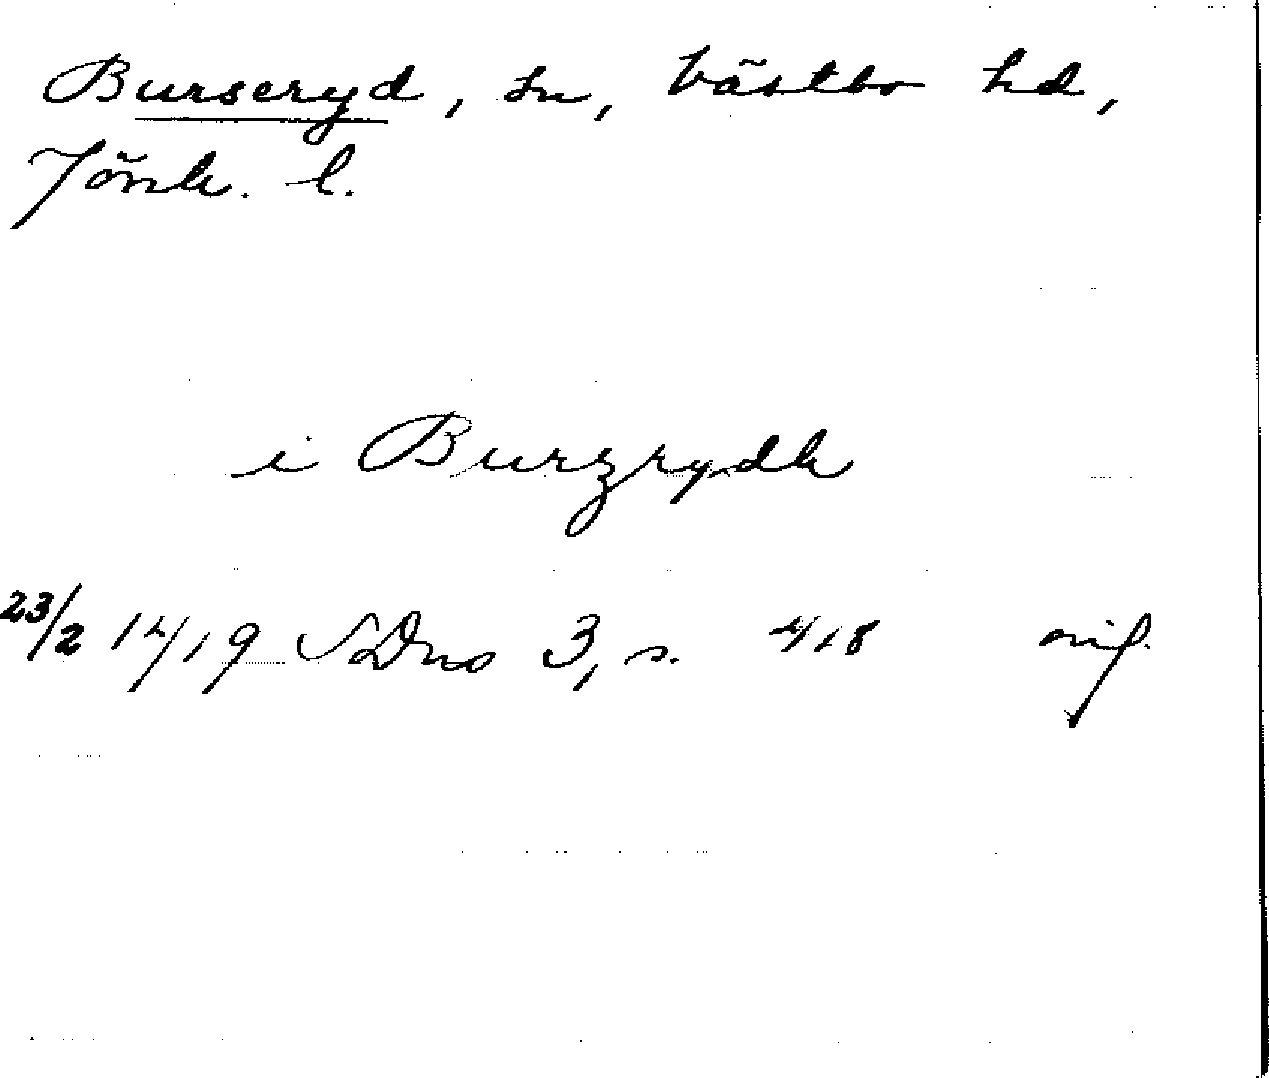 Burseryd, sn, Västbo hd,
Jönk. l.
i Burzrydh
23/2 1419 SDns 3, s. 418 orig.